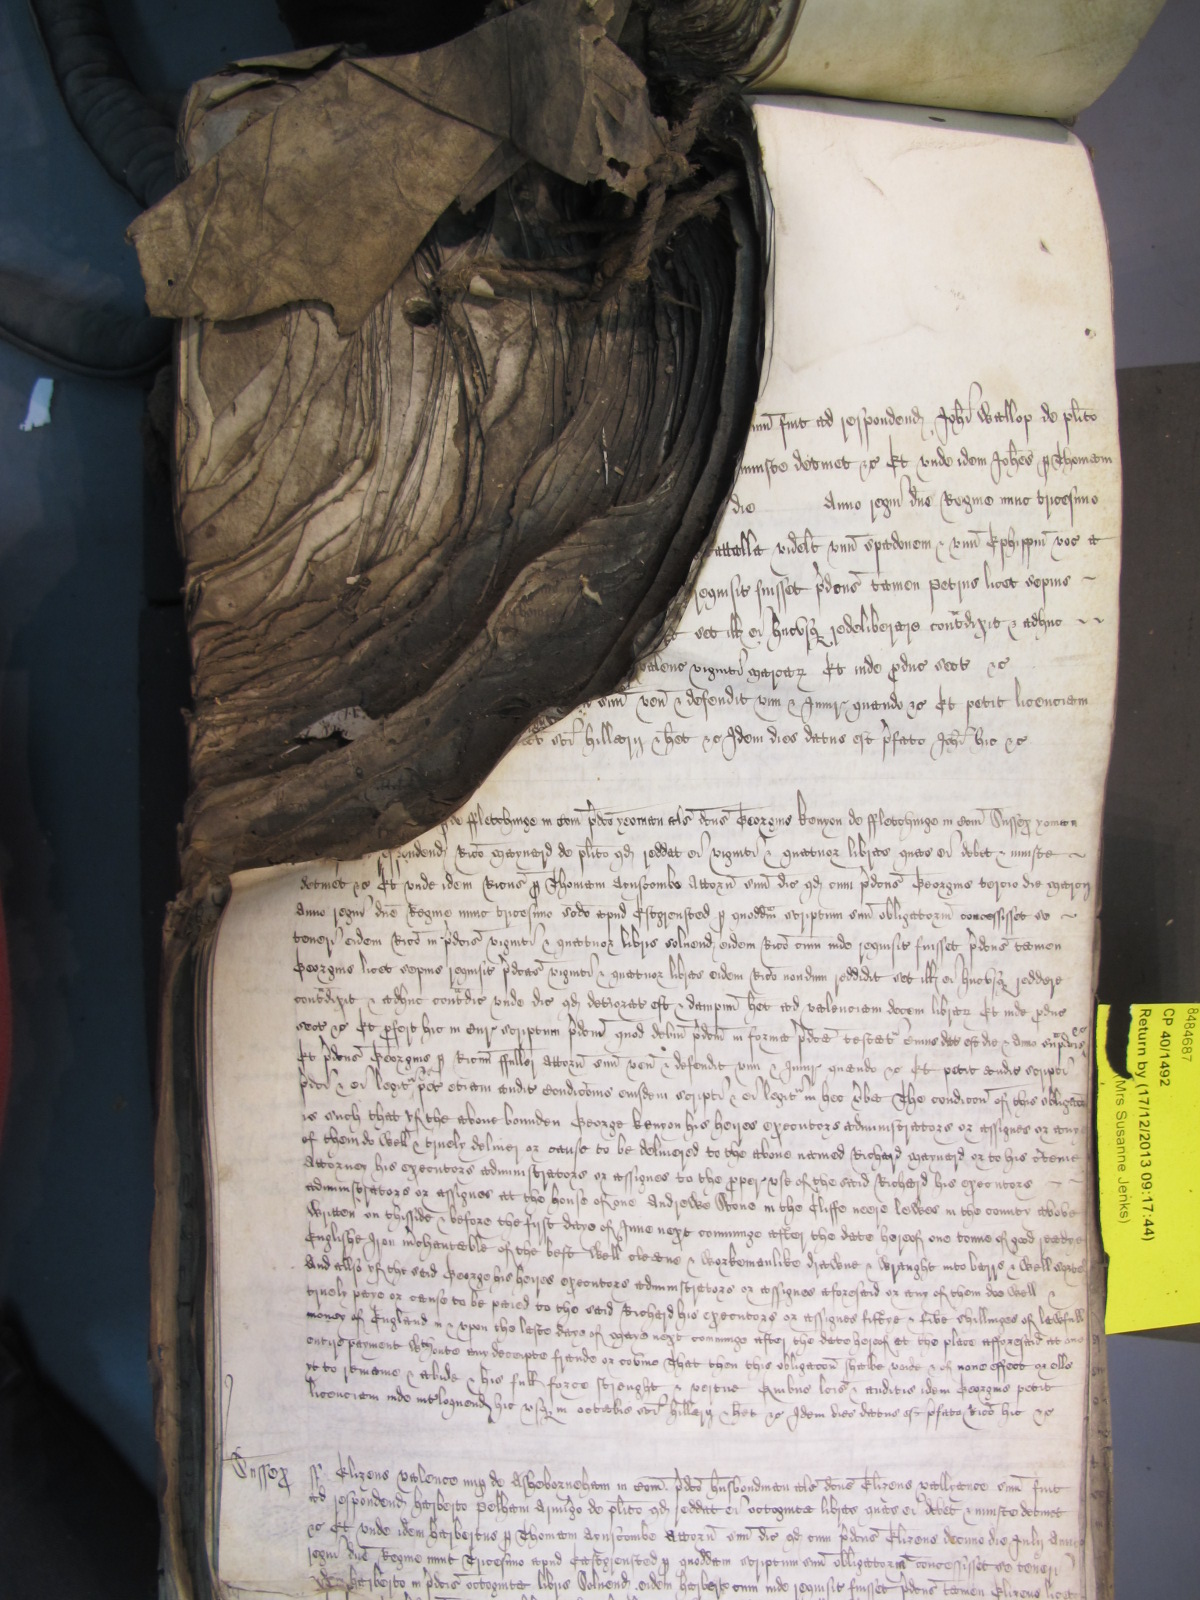 sum fuit ad respondend Joh̄i Wallop de pl̄ito
iniuste detinet &c Et unde idem Joh̄es p Thomam
die Anno regni dn̄e Regine nunc tricesimo
catalla videlt unū spadonem & unū Ephippiū voc a
requisit fuisset p̄dcūs tamen Petrus licet sepius
set ill ei hucusq̧ redeliberare contradixit & adhuc
valenc viginti marcar Et inde p̄duc sect &c
suū ven & defendit vim & Iniur quando &c Et petit licenciam
sc̄i Hillarij & h̄et &c Idem dies datus est p̄fato Joh̄i hic &c
de Ffletchinge in Com p̄dco yeoman als dcūs Georgius Kenyon de Ffletchinge in Com Sussex yoman
respondend Rico Maynard de pl̄ito qd reddat ei viginti & quatuor libras quas ei debet & iniuste
detinet &c Et unde idem Ricus p Thomam Acuscombe Attorn suū dic qd cum p̄dcūs Georgius tercio die Marcij
Anno regni dn̄e Regine nunc tricesimo scdo apud Estgrensted p quoddam scriptum suū obligatoriū concessisset se
teneri eidem Rico in p̄dcis viginti & quatuor libris solvend eidem Rico cum inde requisit fuisset p̄dcūs tamen
Georgius licet sepius requisit p̄dcas viginti & quatuor libras eidem Rico nondum reddidit set ill ei hucusq̧ reddere
contradixit & adhuc contradic unde dic qd deteriorat est & dampnū h̄et ad valenciam decem librar Et inde p̄duc
sect &c Et p̄fert hic in Cur scriptum p̄dcm quod debitū p̄dcm in forma p̄dca testat cuius dat est die & anno sup̄dcis &c
Et p̄dcūs Georgius p Ricm Ffuller Attorn suū ven & defendit vim & Iniur quando &c Et petit auditū scripti
p̄dci & ei legit petit etiam auditū Condicōnis eiusdem scripti & ei legit in hec v̄ba The condicon of this obligacon
is such that yf the above bounden George Kenyon his heyres executors administrators or assignes or anye
of them do well & truely deliver or cause to be delivered to the above named Richard Maynard or to his certeine
Attorney his executors administrators or assignes to the proper use of the said Richard his executors
administrators or assignes at the house of one Andrewe Stone in the Cliffe neere Lewes in the county above
written on thisside & before the first daye of June next comminge after the date hereof one tonne of good
Englishe Iron m̄chantable of the best well cleane & workemanlike drawne & wrought into barrs & well
And also yf the said George his heyres executors administrators or assignes aforesaid or any of them doe well &
truely paye or cause to be paied to the said Richard his executors or assignes fiftye & five shillinges of lawfull
money of England in & upon the laste daye of Maye next comminge after the date hereof at the place afforesaid at one
entyre payment wthoute any deceipte fraude or covine That then this obligacon shalbe voide & of none effect or ells
yt to remaine & abide in his full force strenght & vertue Quibus lcis & auditis idem Georgius petit
licenciam inde int̄loquend hic usq̧ in octabis sc̄i Hillarij & h̄et &c Idem dies datus est p̄fato Rico hic &c
Sussex ss Elizeus Valence nup de Asheborneham in Com p̄dco husbondman als dcūs Elizeus Vallance sum̄ fuit
ad respondend Harberto Pelham Armigo de pl̄ito qd reddat ei octoginta libras quas ei debet & iniuste detinet
&c Et unde idem Harbertus p Thomam Acuscombe Attorn suū dic qd cum p̄dcūs Elizeus decimo die Julij Anno
regni dn̄e Regine nunc Tricesimo apud Eastgrensted p quoddam scriptum suū obligatoriū concessisset se teneri
Harberto in p̄dcis octoginta libris Solvend eidem Harberto cum inde requisit fuisset p̄dcūs tamen Elizeus licet
8484687
CP 40/1492
Return by (17/12/2013 09:17:44)
Mrs Susanne Jenks)